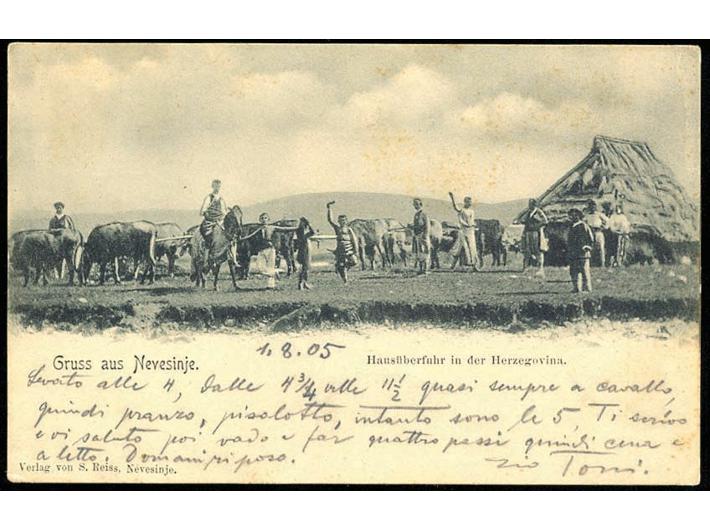 1.8.05
Gruss aus Nevesinje.
Hausüberfuhr in der Herzegovina.
Levato alle 4, dalle 4 3/4 alle 11 1/2 quasi sempre a cavallo,
quindi pranzo, pisolotto, intanto sono le 5, Ti scrivo
e vi saluto poi vado a far quattro passi quindi cena e
a letto. Domani riposo.
zio Toni.
Verlag von S. Reiss, Nevesinje.